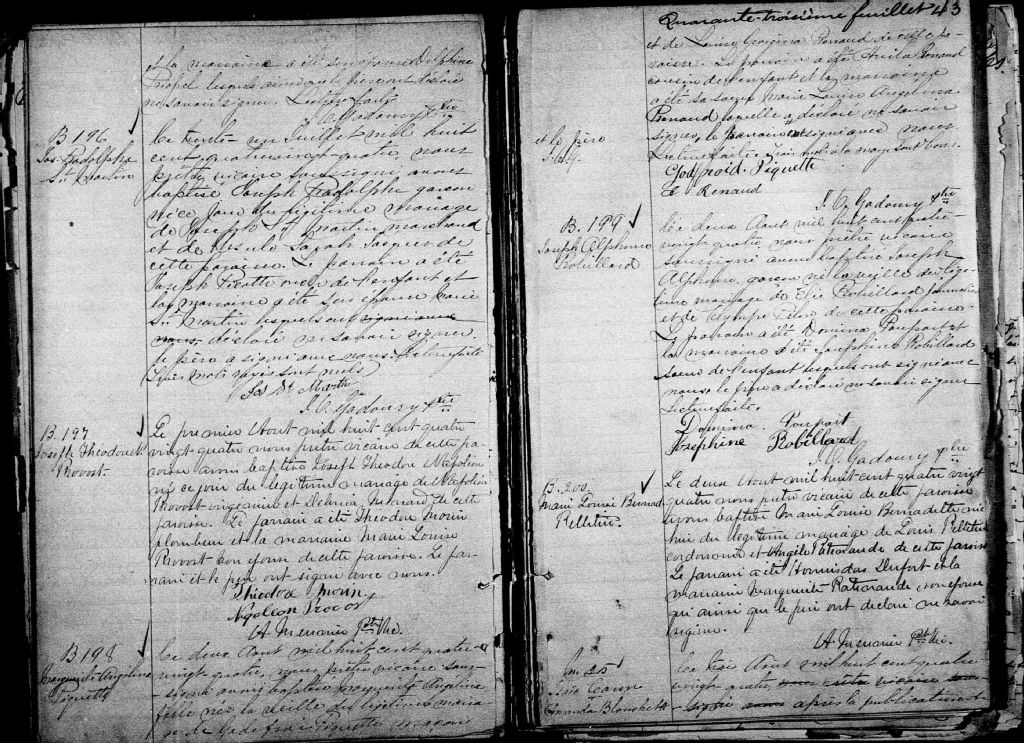 et la marraine a été son épouse Delphine
lesquels ainsi que le père ont déclaré
ne savoir signer. Lecture faite
J. O. Gadoury Ptre
B 196
Jos. Radolphe
St. Martin
Ce trente-un Juillet mil huit
cent quatrevingt-quatre, nous
prêtre vicaire soussigné avons
baptisé Joseph Radolphe garçon
né ce jour du légitime mariage
de Joseph St Martin marchand
et de Sarah Jacques de
cette paroisse. Le parrain a été
Joseph oncle de l'enfant et
la marraine a été son épouse Marie
St. Martin lesquels ont signé avec
nous déclaré ne savoir signer
le père a signé avec nous. Lecture faite
Trois mots rayés sont nuls
Jos St Martin
J. O. Gadoury Ptre
B. 197
Joseph Théodore N.
Provost
Le premier Aout mil huit cent quatre
vingt quatre nous prêtre vicaire de cette pa
roisse avons baptisé Joseph Théodore Napoléon
né ce jour du légitime mariage de Napoléon
Provost et Menard de cette
paroisse. Le parrain a été Théodore Morin
plombier et la marraine Marie Louise
Provost son épouse de cette paroisse. Le par-
rain et le père ont signé avec nous.
Théodore Morin
Napoléon Provost
A. Ptre Vic.
B 198
Marguerite Angelina
Piquette
Ce deux Aout mil huit cent quatre
vingt quatre, nous prêtre vicaire sous-
signé avons baptisé Marguerite Angelina
fille née la veille du légitime maria
ge de Godefroi Piquette maçon
Quarante-troisième feuillet 43
et de Georgina Renaud de cette pa-
roisse. Le parrain a été Renaud
cousin de l'enfant et la marraine
a été sa soeur Marie Louise Angelina
Renaud laquelle a déclaré ne savoir
signer, le parrain a signé avec nous.
Lecture faite. Trois mots à la marge sont bons.
et le père
J. O. G.
Godfroid Piquette
E Renaud
J. O. Gadoury Ptre
B. 199
Joseph Alphonse
Robillard
Ce deux Aout mil huit cent quatre-
vingt quatre, nous prêtre vicaire
soussigné avons baptisé Joseph
Alphonse, garçon né la veille du légi-
time mariage de Elie Robillard journalier
et de Olympe de cette paroisse.
Le parrain a été Domina Poupart et
la marraine a été Josephine Robillard
soeur de l'enfant lesquels ont signé avec
nous, le père a déclaré ne savoir signer
Lecture faite.
Domina Poupart
Josephine Robillard
J. O. Gadoury ptre
B. 200
Marie Louise Bernadette
Pelletier
Le deux Aout mil huit cent quatre vingt
quatre nous prêtre vicaire de cette paroisse
avons baptisé Marie Louise Bernadette née
hier du légitime mariage de Louis Pelletier
cordonnier et Angèle Patenaude de cette paroisse
Le parrain a été Hormisdas Dufort et la
marraine Marguerite Patenaude son épouse
qui ainsi que le père ont déclaré ne savoir
signer.
A. Ptre Vic.
M. 25
Blanchette
Le trois Aout mil huit cent quatre
vingt quatre, nous prêtre vicaire sous
signé avons après la publication